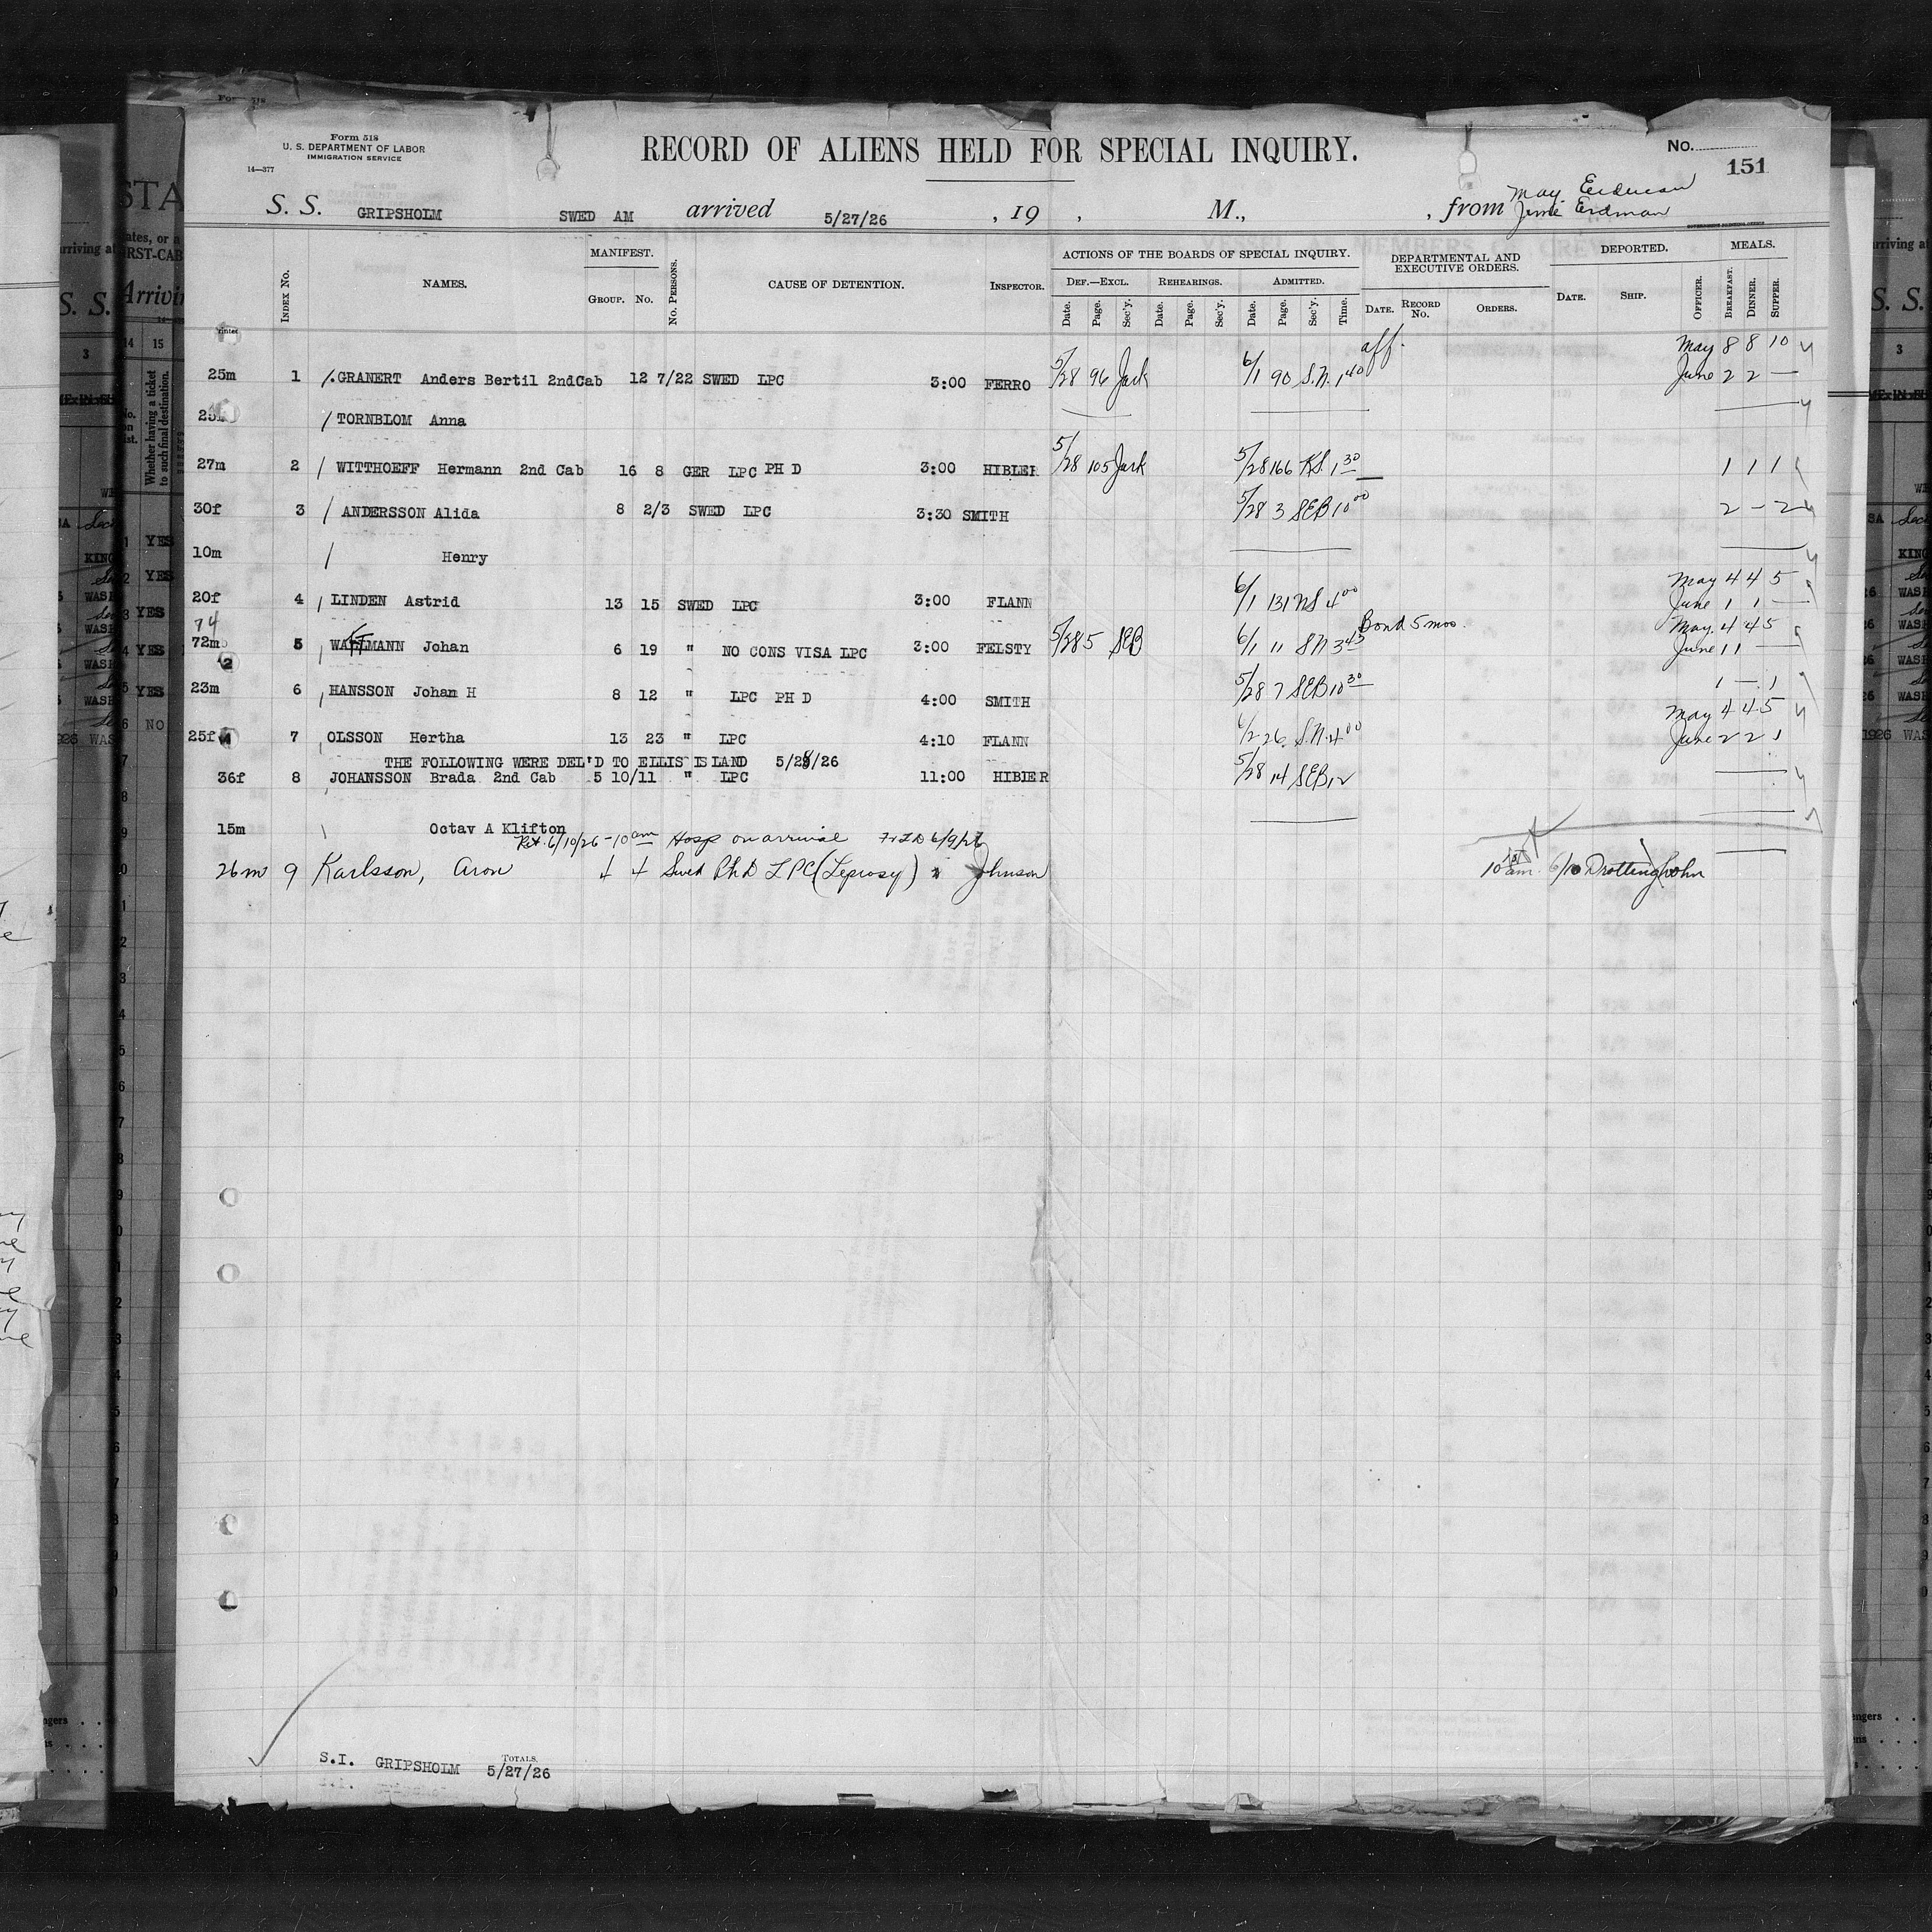 Form 518
U. S. DEPARTMENT OF LABOR
IMMIGRATION SERVICE
14—377
RECORD OF ALIENS HELD FOR SPECIAL INQUIRY.
No.
151
S. S. GRIPSHOLM SWED AM arrived 5/27/26, 19 , M., , from May Erdman
June Erdman
INDEX No. NAMES. MANIFEST. GROUP. No. No. PERSONS. CAUSE OF DETENTION. INSPECTOR. ACTIONS OF THE BOARDS OF SPECIAL INQUIRY. DEF.—EXCL. REHEARINGS. ADMITTED. DEPARTMENTAL AND EXECUTIVE ORDERS. DEPORTED. MEALS.
Date. Page. Sec'y. Date. Page. Sec'y. Date. Page. Sec'y. Time. DATE. RECORD No. ORDERS. DATE. SHIP. OFFICER. BREAKFAST. DINNER. SUPPER.
aff. May 8 8 10
25m 1 GRANERT Anders Bertil 2ndCab 12 7/22 SWED LPC 3:00 FERRO 5/28 96 Jark 6/1 90 S.N. 1 40 June 2 2 —
TORNBLOM Anna
27m 2 WITTHOEFF Hermann 2nd Cab 16 8 GER LPC PH D 3:00 HIBLER 5/28 105 Jark 5/28 166 KS 1 30 1 1 1
30f 3 ANDERSSON Alida 8 2/3 SWED LPC 3:30 SMITH 5/28 3 SEB 10 00 2 — 2
10m Henry
May 4 4 5
20f 4 LINDEN Astrid 13 15 SWED LPC 3:00 FLANN 6/1 131 NS 4 00 June 1 1 —
74 Bond 5 mos. May 4 4 5
72m 5 WALLMANN Johan 6 19 " NO CONS VISA LPC 3:00 FELSTY 5/28 5 SEB 6/1 11 SN 3 45 June 1 1 —
23m 6 HANSSON Johan H 8 12 " LPC PH D 4:00 SMITH 5/28 7 SEB 10 30 1 — 1
May 4 4 5
25f 7 OLSSON Hertha 13 23 " LPC 4:10 FLANN 6/2 26 S.N. 4 00 June 2 2 1
THE FOLLOWING WERE DEL'D TO ELLIS ISLAND 5/28/26
36f 8 JOHANSSON Brada 2nd Cab 5 10/11 " LPC 11:00 HIBIER 5/28 14 SEB 12
15m Octav A Klifton
Ret. 6/10/26 - 10 am Hosp on arrival 6/9/26
26m 9 Karlsson, Aron 4 4 Swed Ph D LPC (Leprosy) Johnson 10 am 6/10 Drottingholm
TOTALS.
S.I. GRIPSHOLM 5/27/26